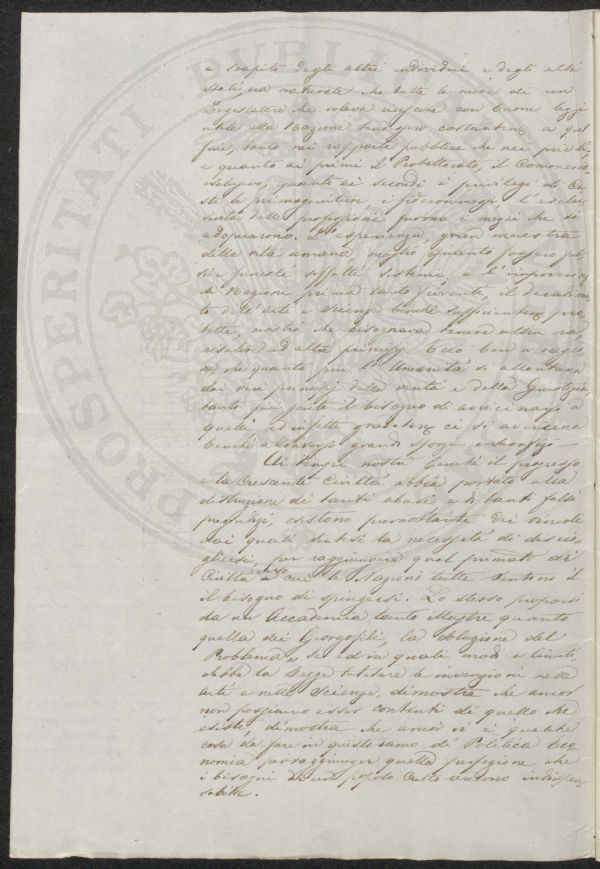 a scapito degli altri individui e degli altri
stati, era naturale che tutte le mire di un
Legislatore che voleva riuscire con buone leggi
utile alla Nazione tendessero costantem. a quel
fine, tanto nei rapporti pubblici che nei privati,
e quanto ai primi il Protettorato, il
quanto ai secondi i privilegi di Ca-
sta le primogeniture, i fidecommessi l'esclu-
sività delle professioni furono i mezzi che si
adoprarono. L'esperienza, gran maestra
della vita umana, mostrò quanto fossero fal-
si e funesti siffatti sistemi, e l'impoverim.
di Nazioni prima tanto fiorenti, il decadimen-
to dell'arti e scienze benchè sufficientem. pro-
tette, mostrò che bisognava tenere altra via
risalire ad altri principj. Ecco ben a ragio-
ne che quanto più l'Umanità si allontana
dai veri principj della verità e della Giustizia,
tanto più sente il bisogno di avvicinarsi a
quelli, ed infatti gradatam. ci si avvicina
benchè attraverso grandi sforzi e sacrifizj –
Ai tempi nostri benchè il progresso
e la Crescente Civiltà abbia portato alla
distruzione di tanti abusi e di tanti falsi
pregiudizj, esistono purnonstante dei vincoli
dai quali sentesi la necessità di discio-
gliersi per raggiungere quel primato di
Civiltà verso a cui le Nazioni tutte sentono il
il bisogno di spingersi. Lo stesso proporsi
da un Accademia tanto illustre quanto
quella dei Georgofili, la soluzione del
Problema, se ed in quali modi e limiti
debba la Legge tutelare le invenzioni nelle
arti e nelle Scienze, dimostra che ancor
non possiamo esser contenti di quello che
esiste, dimostra che ancor vi è qualche
cosa da fare in questo ramo di Politica Eco-
nomia per raggiunger quella perfezione che
i bisogni di un popolo culto rendono indispen-
sabile.
PROSPERITATI PUBLICAE